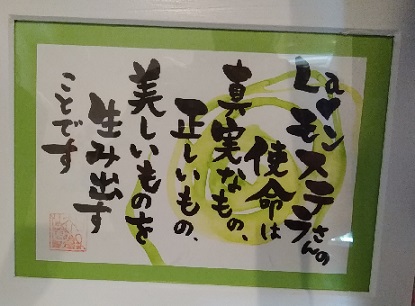 La♥ン
モステラさんの
使命は
真実なもの、
正しいもの、
美しいものを
生み出す
ことです